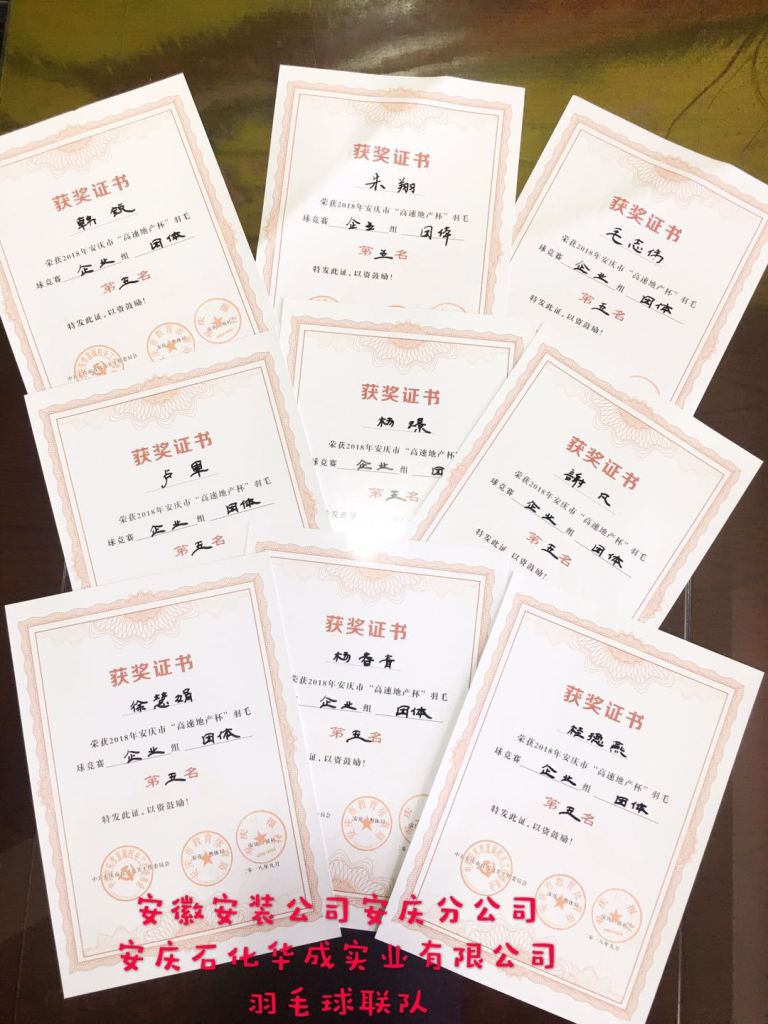 获奖证书
韩锐
荣获2018年安庆市“高速地产杯”羽毛
球竞赛 企业 组 团体
第五名
特发此证,以资鼓励!
获奖证书
朱翔
荣获2018年安庆市“高速地产杯”羽毛
球竞赛 企业 组 团体
第五名
特发此证,以资鼓励!
获奖证书
毛志伟
荣获2018年安庆市“高速地产杯”羽毛
球竞赛 企业 组 团体
第五名
特发此证,以资鼓励!
获奖证书
卢
荣获2018年安庆市“高速地产杯”羽毛
球竞赛 企业 组 团体
第五名
获奖证书
杨璟
荣获2018年安庆市“高速地产杯”羽毛
球竞赛 企业 组 团
第五名
特发此证
获奖证书
謝凡
荣获2018年安庆市“高速地产杯”羽毛
球竞赛 企业 组 团体
第五名
特发此证,以资鼓励!
获奖证书
徐慧娟
荣获2018年安庆市“高速地产杯”羽毛
球竞赛 企业 组 团体
第五名
特发此证,以资鼓励!
二〇一八年九月
获奖证书
杨春青
荣获2018年安庆市“高速地产杯”羽毛
球竞赛 企业 组 团体
第五名
特发此证,以资鼓励!
获奖证书
桂德燕
荣获2018年安庆市“高速地产杯”羽毛
球竞赛 企业 组 团体
第五名
特发此证,以资鼓励!
二〇一八年九月
安徽安装公司安庆分公司
安庆石化华成实业有限公司
羽毛球联队